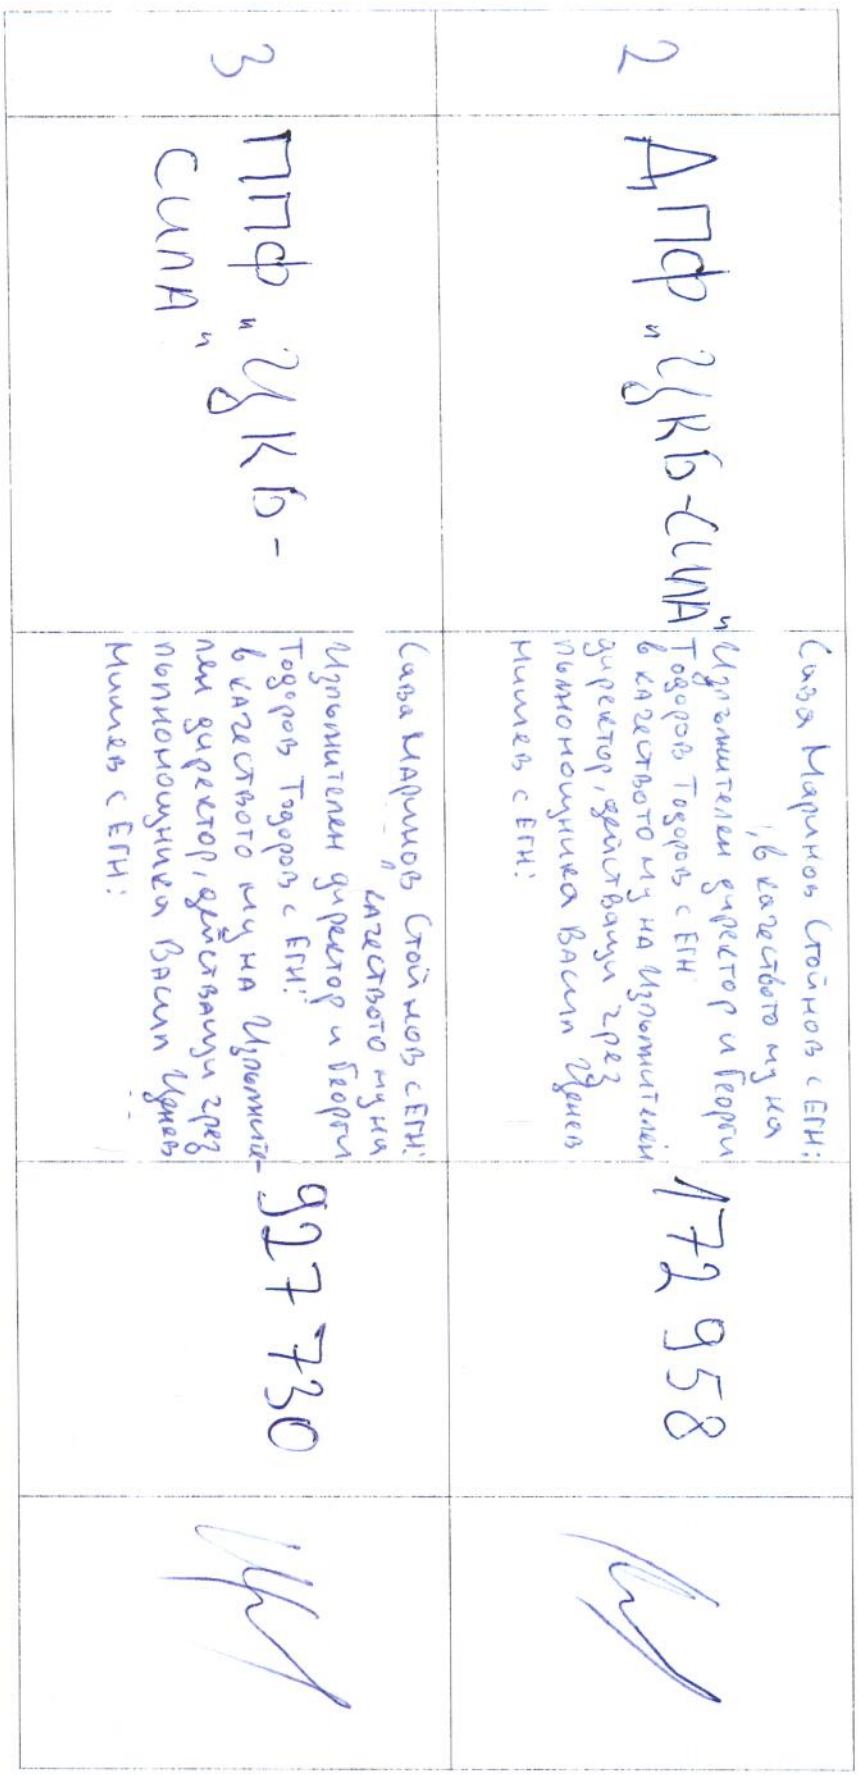 2
ДПФ „ЦКБ-СИЛА“
Сава Маринов Стойнов с ЕГН:
, в качеството му на
Изпълнителен директор и Георги
Тодоров Тодоров с ЕГН
в качеството му на Изпълнителен
директор, действащи чрез
пълномощника Васил Ценев
Мишев с ЕГН:
172 958
3
ППФ „ЦКБ-
СИЛА“
Сава Маринов Стойнов с ЕГН:
качеството му на
Изпълнителен директор и Георги
Тодоров Тодоров с ЕГН:
в качеството му на Изпълните-
лен директор, действащи чрез
пълномощника Васил Ценев
Мишев с ЕГН:
927 730